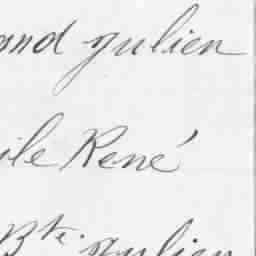 and Julien
ile René
Bte Julien